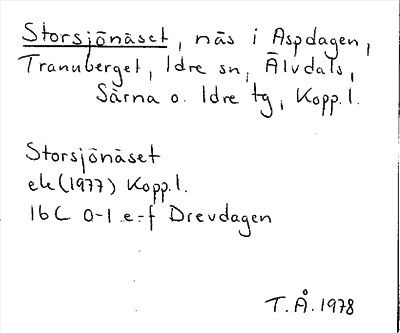 Storsjönäset, näs i Aspdagen,
Tranuberget, Idre sn, Älvdals,
Särna o. Idre tg, Kopp.l.
Storsjönäset
ek (1977) Kopp.l.
16C 0-1 e-f Drevdagen
T.Å. 1978